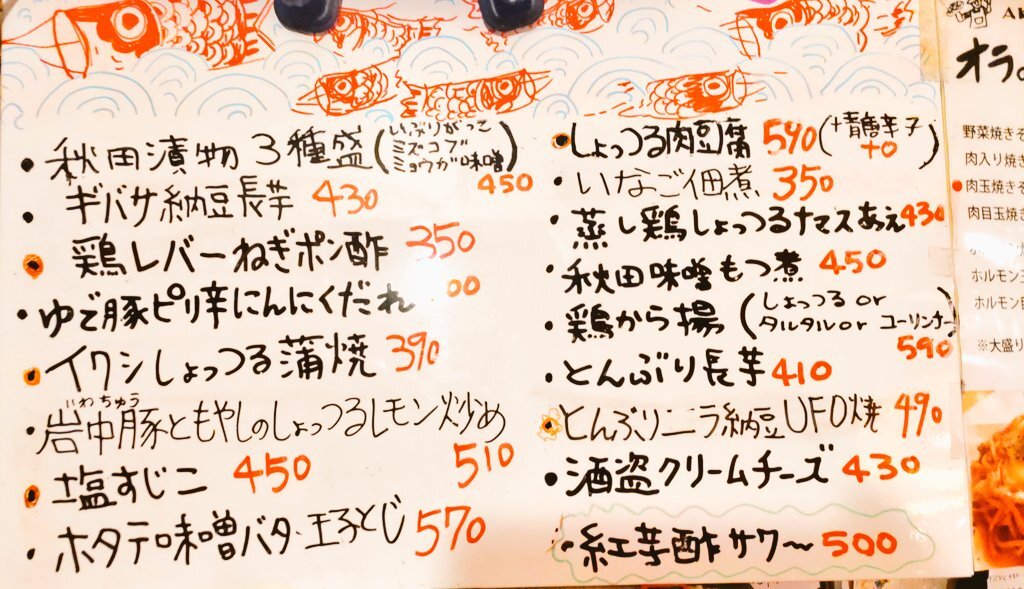 ・秋田漬物3種盛(いぶりがっこ
ミズコブ
ミョウガ味噌)
450
・ギバサ納豆長芋 430
・鶏レバーねぎポン酢 350
・ゆで豚ピリ辛にんにくだれ 00
・イワシしょっつる蒲焼 390
いわちゅう
・岩中豚ともやしのしょっつるレモン炒め
510
・塩すじこ 450
・ホタテ味噌バター玉子とじ 570
・しょっつる肉豆腐 590(+青唐辛子
+0)
・いなご佃煮 350
・蒸し鶏しょっつるナマスあえ 430
・秋田味噌もつ煮 450
・鶏から揚(しょっつる or
タルタル or ユーリンチー)
590
・とんぶり長芋 410
・とんぶりニラ納豆UFO焼 490
・酒盗クリームチーズ 430
・紅芋酢サワー 500
オラ
野菜焼きそ
肉入り焼き
肉玉焼きそ
肉目玉焼き
ホルモン
ホルモン
※大盛り